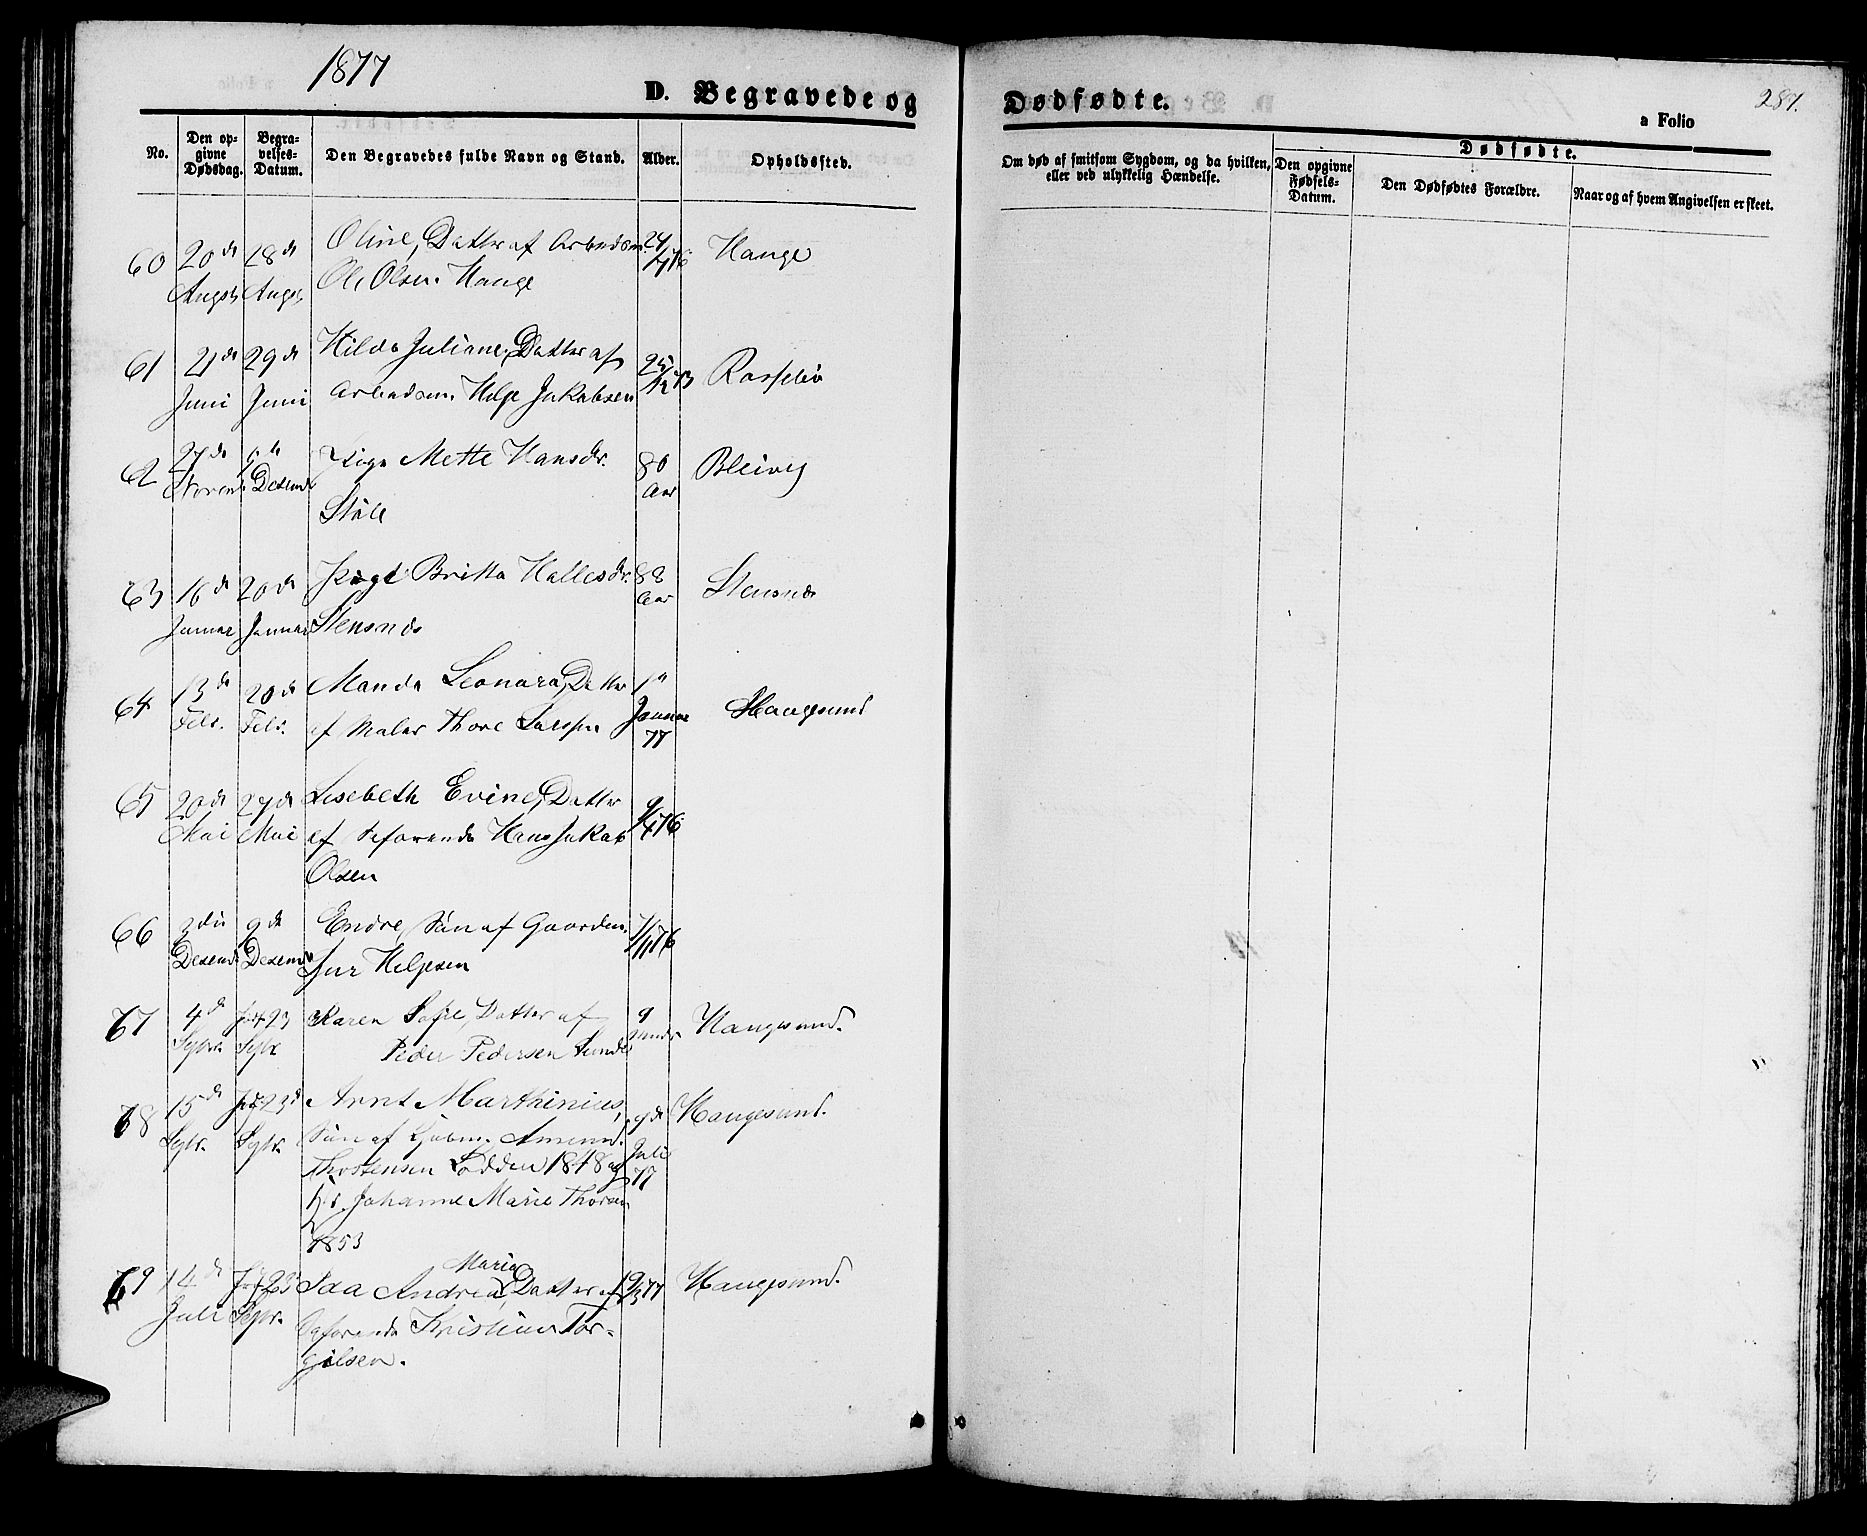 1877
D. Begravede og Dødfødte.
287.
a Folio
No.
Den opgivne Dødsdag.
Begravelses-Datum.
Den Begravedes fulde Navn og Stand.
Alder.
Opholdssted.
Om død af smitsom Sygdom, og da hvilken,
eller ved ulykkelig Hændelse.
Dødfødte.
Den opgivne Fødsels-Datum.
Den Dødfødtes Forældre.
Naar og af hvem Angivelsen er skeet.
60 20de 28de Oline, Datter af Arbeidsm. 24/
Augst. Augst. Ole Olsen Hauge 76 Hauge
61 21de 29de Hilda Juliane, Datter af 25/12 73
Juni Juni Arbeidsm. Helge Jakobsen
62 27de Pige Mette Hansdr. 80 Bleiveg
Novemb. Desemb. Aar
63 16de 20de Pige Britta Hallesdr. 88
Januar Januar Stensnes Aar Stensnes
64 13de 20de Manda Leonara, Datter 1ste
Febr. Febr. af Maler Thore Larsen Januar Haugesund
77
65 20de 27de Lisebeth Evine, Datter 9/4 76
Mai Mai af Søfarende Hans Jakob
Olsen
66 3die 9de Endre, Søn af Gaardm. 7/11 76
Desemb. Desemb. Sjur Helgesen
67 4de 23 Karen Sofie, Datter af 9
Septr. Septr. Peder Pedersen Sunde Haugesund.
68 15de 23de Arnt Marthinius, 9de Haugesund.
Septr. Septr. Søn af Amund Juli
Thostensen Lodden 1848 og 77
Johanne Marie
1853
69 14de 23 Ida Andrea Maria, Datter af 19/5 77 Haugesund.
Juli Septr. Søfarende Kristian Tor-
gilsen.